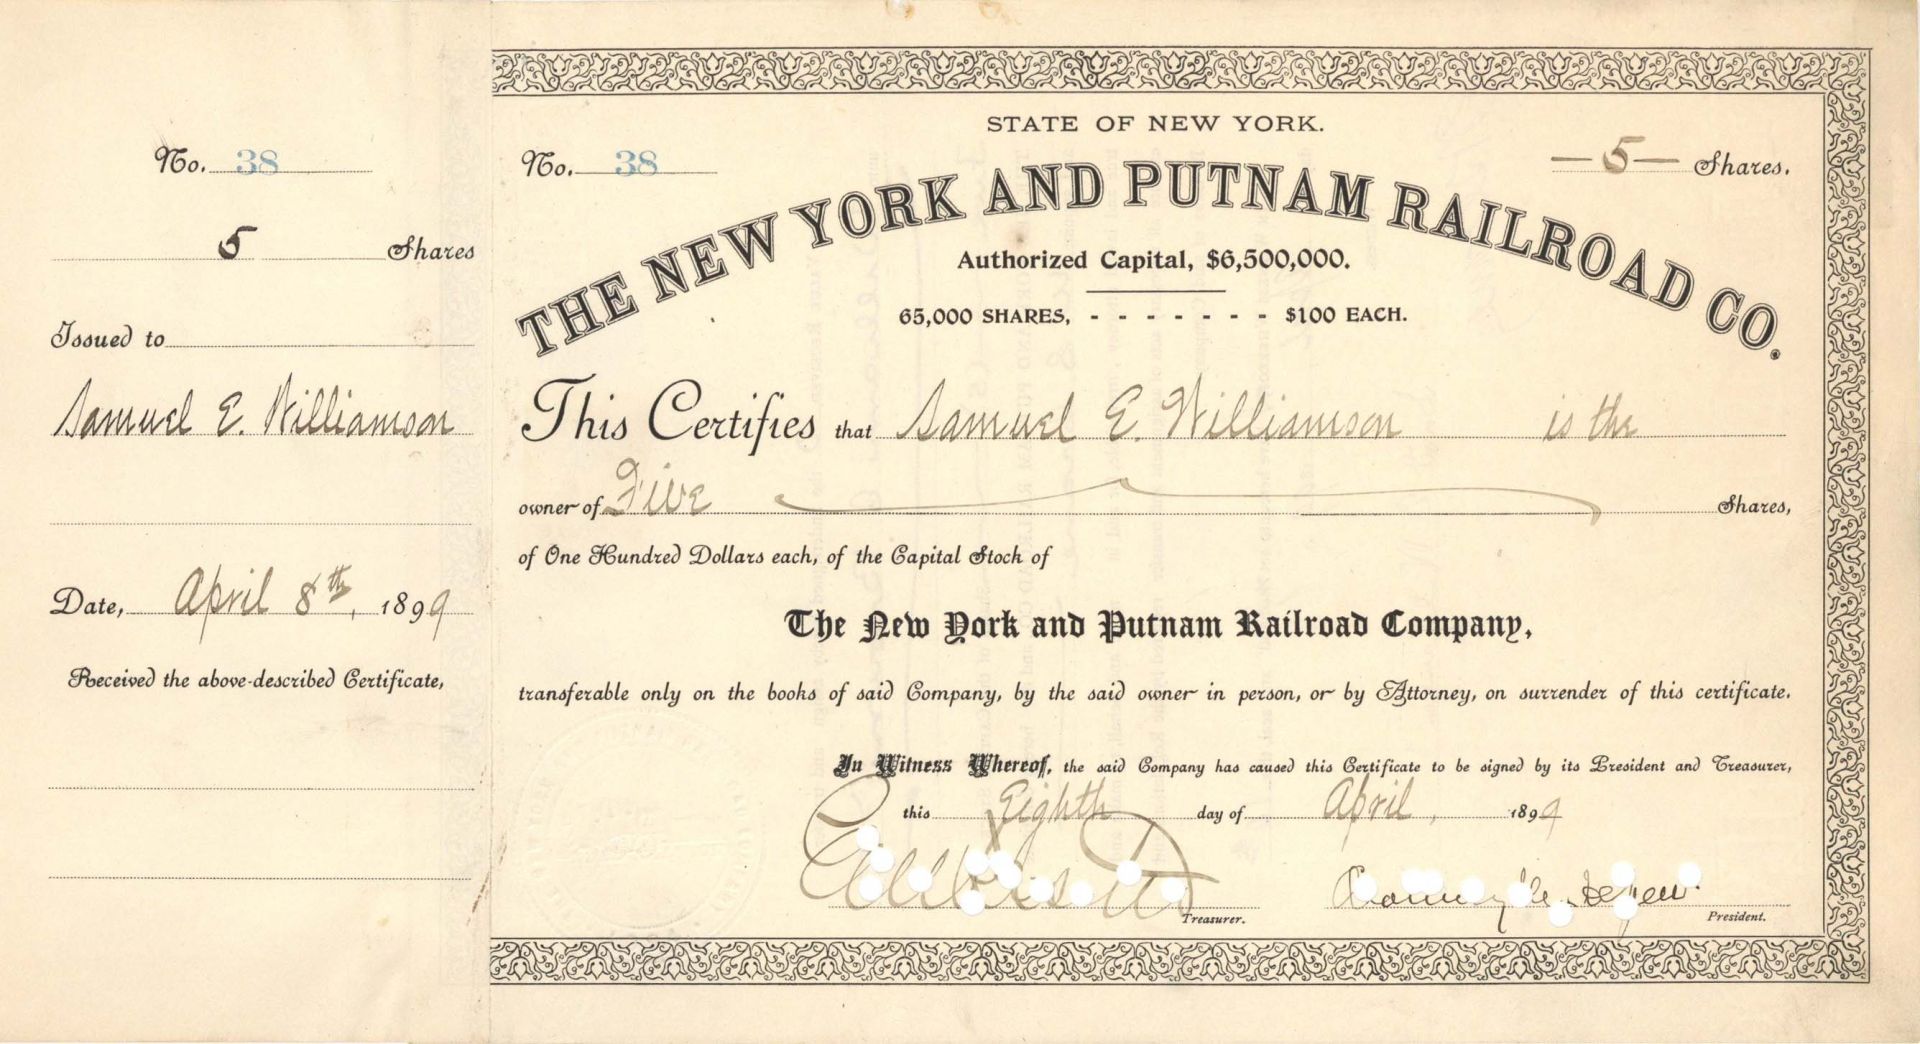 No. 38
5 Shares
Issued to
Samuel E. Williamson
Date, April 8th, 1899
Received the above-described Certificate,
STATE OF NEW YORK.
No. 38
—5— Shares.
THE NEW YORK AND PUTNAM RAILROAD CO.
Authorized Capital, $6,500,000.
65,000 SHARES, - - - - - - - $100 EACH.
This Certifies that Samuel E. Williamson is the
owner of Five Shares,
of One Hundred Dollars each, of the Capital Stock of
The New York and Putnam Railroad Company,
transferable only on the books of said Company, by the said owner in person, or by Attorney, on surrender of this certificate.
In Witness Whereof, the said Company has caused this Certificate to be signed by its President and Treasurer,
this Eighth day of April, 1899
Treasurer.
President.